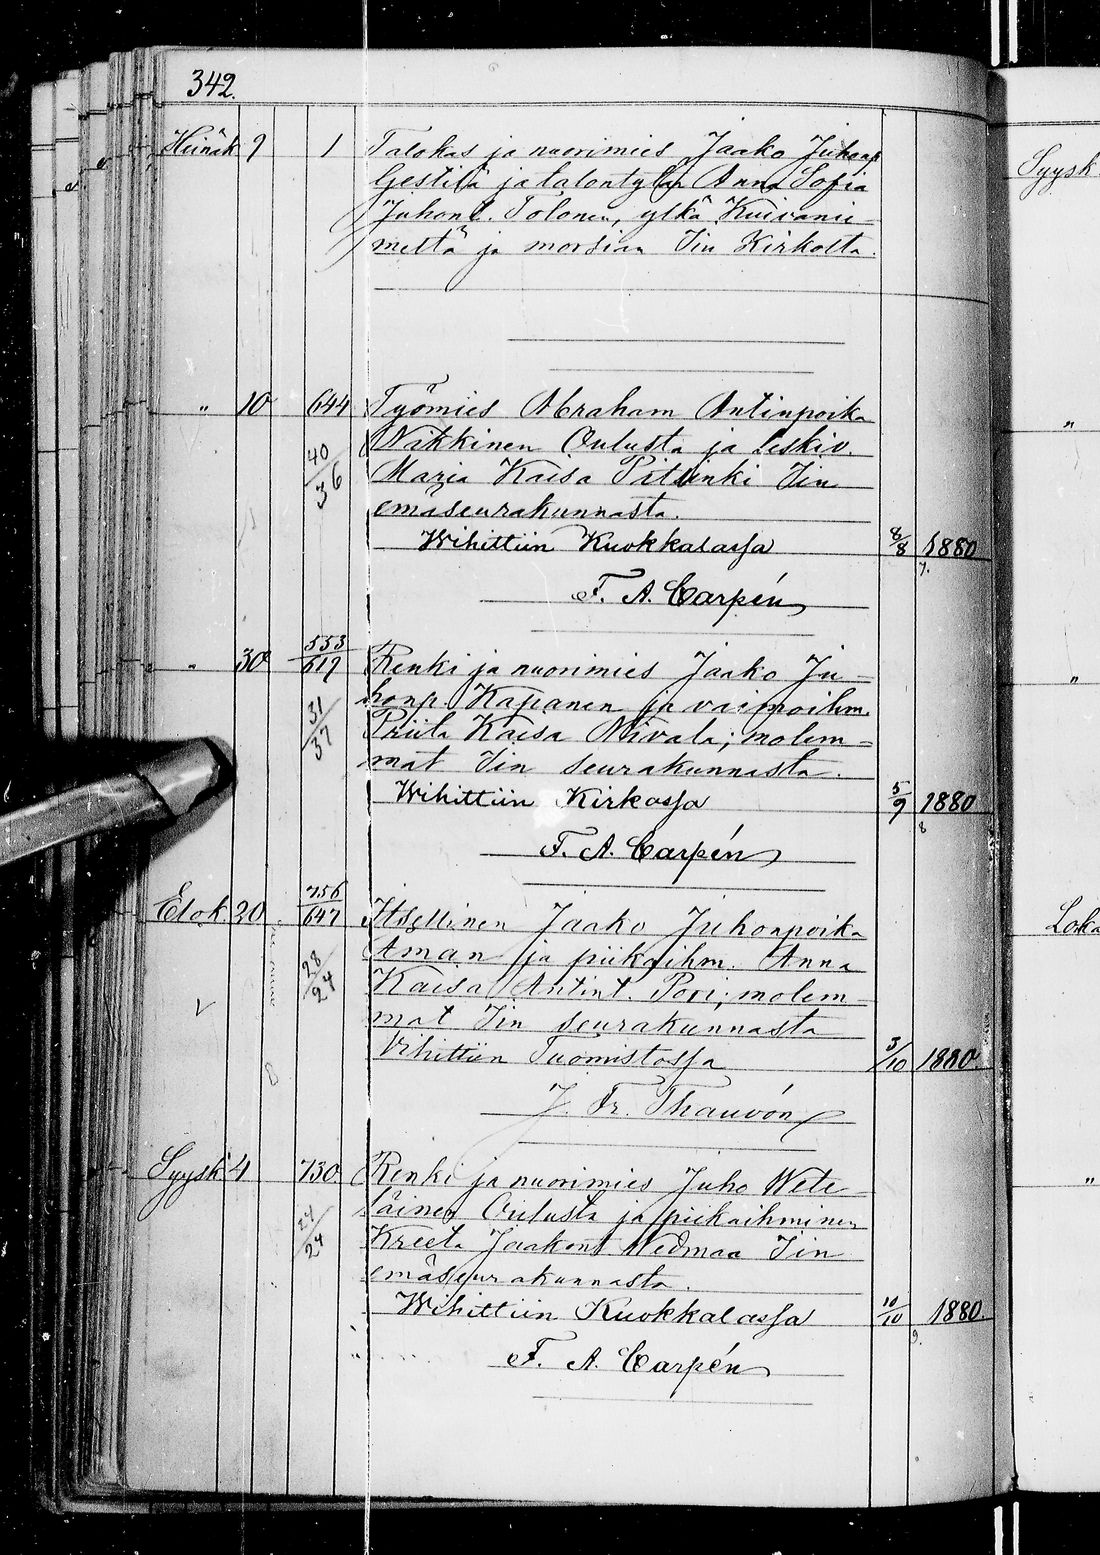 342.
Heinäk 9 1 Talokas ja nuorimies Jaako Juhonp
Gestilä ja talontytär Anna Sofia
Juhont. Tolonen, ylkä Kuivanie-
meltä ja morsian Iin Kirkolta.
" 10 644 Työmies Abraham Antinpoika
40/36 Nikkinen Oulusta ja leskiv.
Maria Kaisa Pitunki Iin
emäseurakunnasta.
Wihittiin Kuokkalassa 8/8 1880
7.
F. A. Carpén
" 30 553/619 Renki ja nuorimies Jaako Ju-
31/37 honp. Kapanen ja vaimoihm.
Priita Kaisa Nivala; molem-
mat Iin seurakunnasta.
Wihittiin Kirkossa 5/9 1880
8
F. A. Carpén
Elok. 20 756/647 Itsellinen Jaako Juhonpoika
28/24 Aman ja piikaihm. Anna
Kaisa Antint. Pori; molem-
mat Iin seurakunnasta
Vihittiin Tuomistossa 3/10 1880.
J. Fr. Thauvón
Syysk 4 730. Renki ja nuorimies Juho Wete-
24/24 läinen Oulusta ja piikaihminen
Kreeta Jaakont Wedmaa Iin
emäseurakunnasta.
Wihittiin Kuokkalassa 10/10 1880.
9.
F. A. Carpén
Syysk
"
"
Loka
"